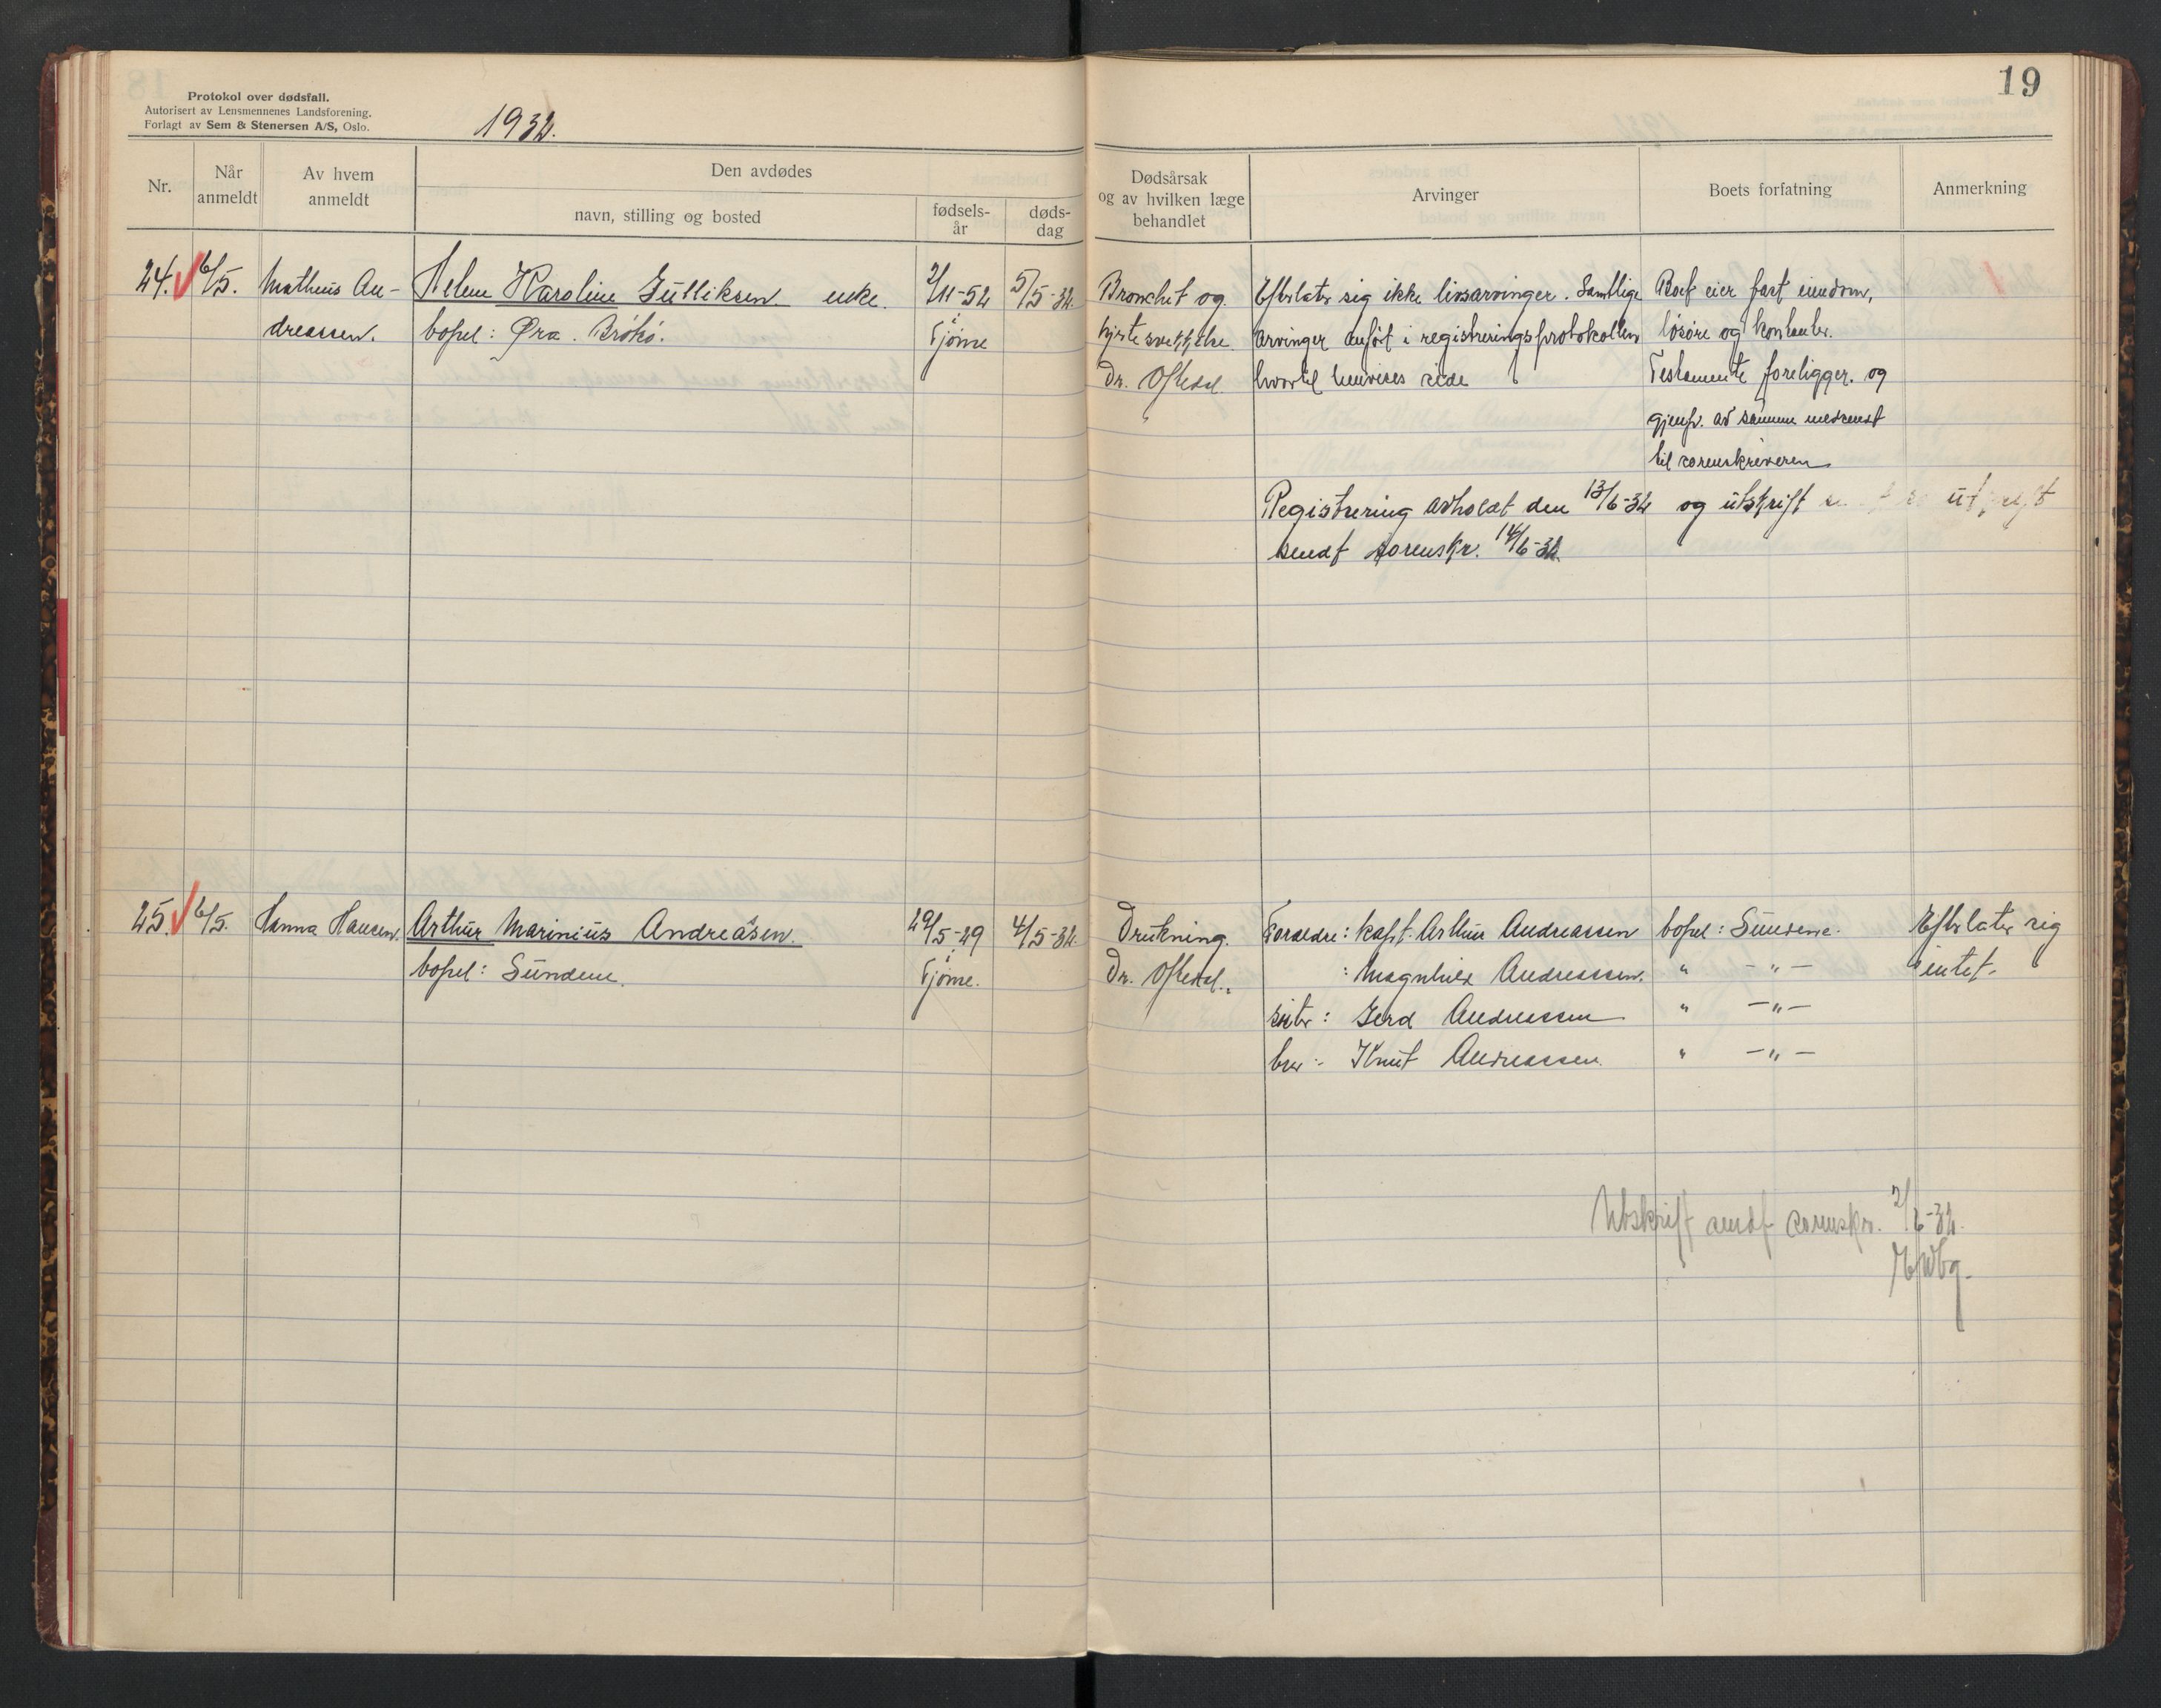 Protokol over dødsfall.
Autorisert av Lensmennenes Landsforening.
Forlagt av Sem & Stenersen A/S, Oslo.
1932.
19
Nr.
Når anmeldt
Av hvem anmeldt
Den avdødes
navn, stilling og bosted
fødsels-år
døds-dag
Dødsårsak og av hvilken læge behandlet
Arvinger
Boets forfatning
Anmerkning
24. 6/5. Matheus An- Helene Karoline Gulliksen enke. 2/11-52 5/5-32. Bronchit og Efterlater sig ikke livsarvinger. Samtlige Boet eier fast eiendom,
dreassen. bopel: Øra. Brøtsø. i Tjøme hjertesvekkelse. arvinger anført i registreringsprotokollen løsøre og kontanter.
Dr. Oftedal. hvortil henvises Testamente foreligger. og
gjenp. av samme medsendt
til sorenskriveren
Registrering avholdt den 13/6-32 og utskrift
sendt sorenskr. 14/6-32.
25. 6/5. Hanna Hansen. Arthur Marinius Andreasen. 29/5-29 4/5-32. Drukning. Foreldre: kapt. Arthur Andreassen bopel: Sundene. Efterlater sig
bopel: Sundene. i Tjøme. Dr. Oftedal. : Magnhild Andreassen. " -"- intet.
sister: Gerd Andreassen " -"-
bror: Knut Andreassen. " -"-
Utskrift sendt sorenskr. 2/6-32.